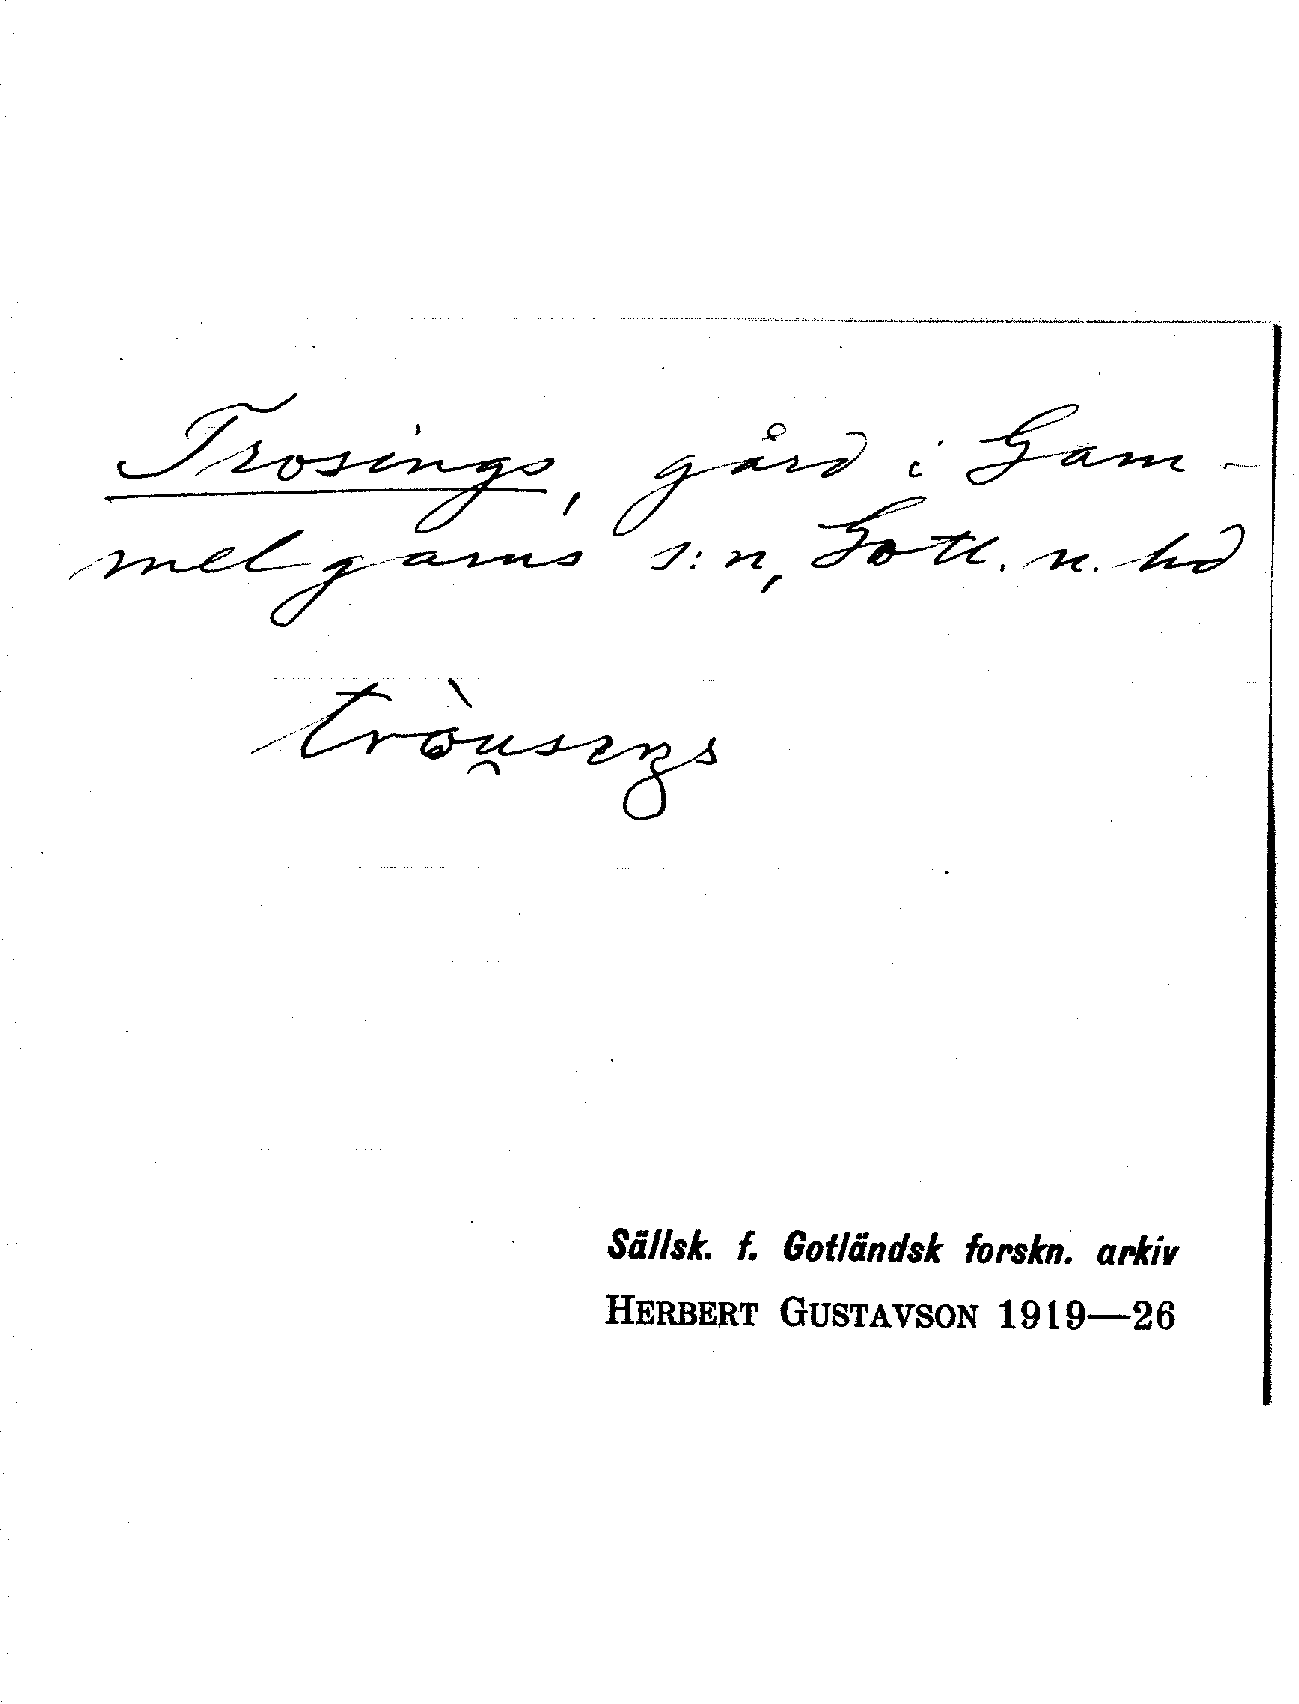 Trosings, gård i Gam-
melgarns s:n, Gotl. n. hd
tròu̯seŋs
Sällsk. f. Gotländsk forskn. arkiv
HERBERT GUSTAVSON 1919—26